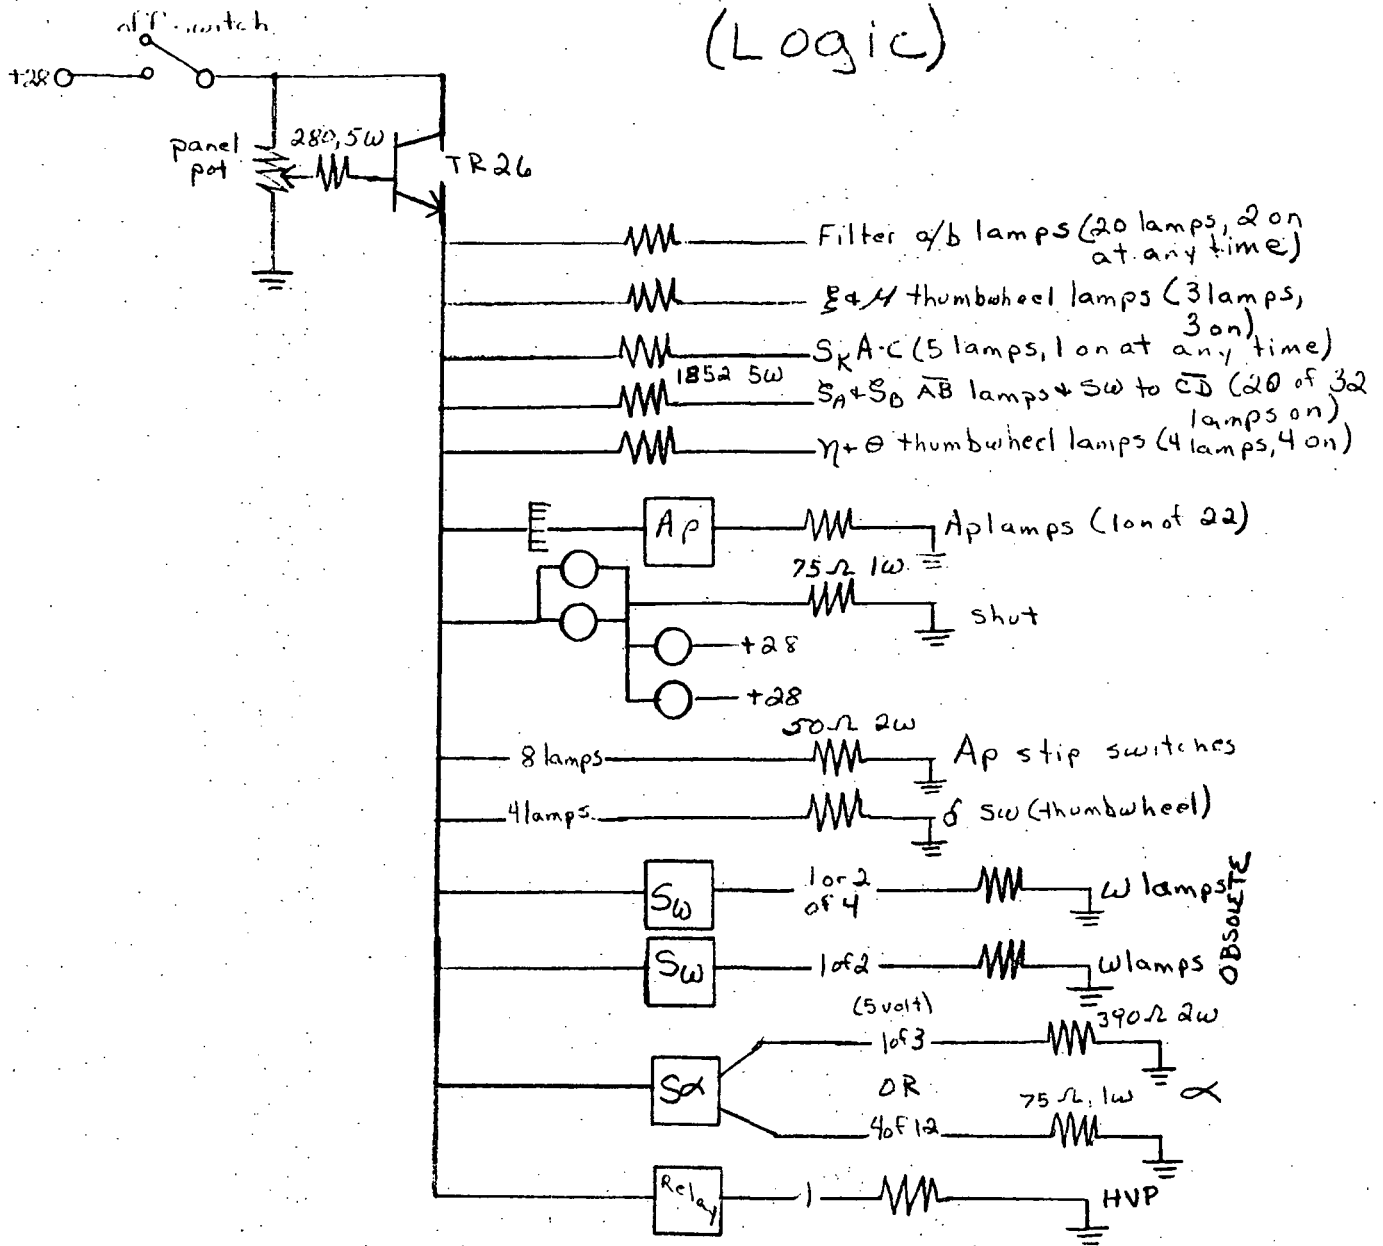 (Logic)
off switch
+28
280, 5W
panel
pot
TR26
Filter a/b lamps (20 lamps, 2 on
at any time)
ξ + μ thumbwheel lamps (3 lamps,
3 on)
SK A-C (5 lamps, 1 on at any time)
185Ω 5W
SA + SB A̅B̅ lamps + SW to C̅D̅ (20 of 32
lamps on)
η + θ thumbwheel lamps (4 lamps, 4 on)
Ap
Ap lamps (1 on of 22)
75Ω 1W
shut
+28
+28
50Ω 2W
8 lamps
Ap stip switches
4 lamps
δ SW (thumbwheel)
Sω
1 or 2
of 4
ω lamps
OBSOLETE
Sω
1 of 2
ω lamps
(5 volt)
1 of 3
390Ω 2W
Sα
OR
α
75Ω, 1W
4 of 12
Relay
1
HVP